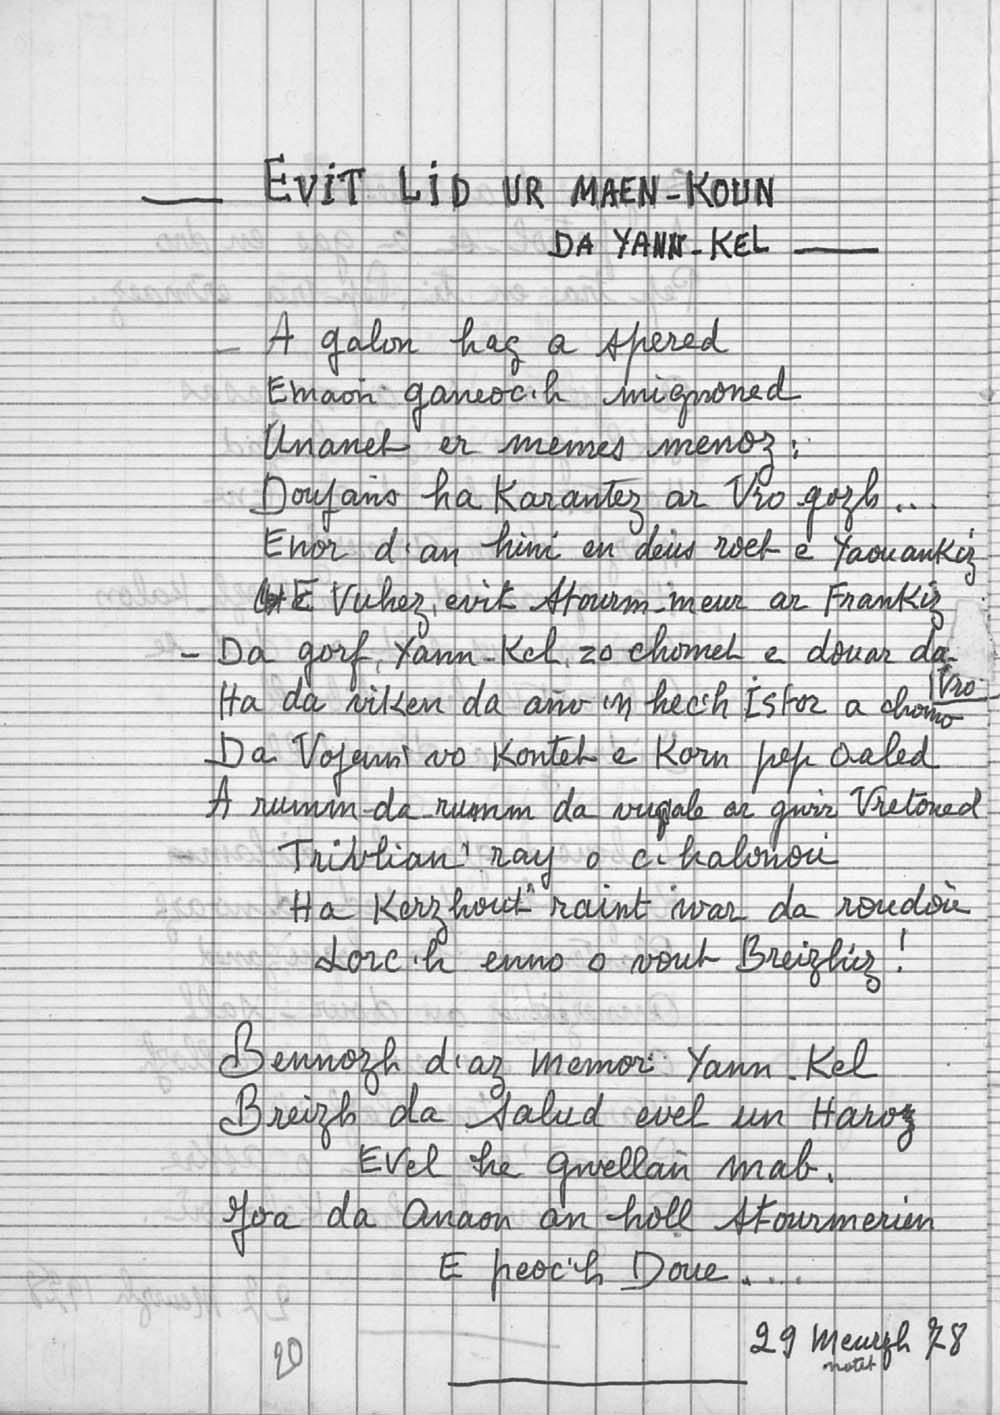 EViT LiD UR MAEN-KOUN
DA YANN-KEL
- A galon hag a spered
Emaon ganeoc'h mignoned
Unanet er memes menoz:
Doujans ha Karantez ar Vro gozh...
Enor d'an hini en deus roet e Yaouankiz
E Vuhez, evit Stourm-meur ar Frankiz
- Da gorf, Yann-Kel, zo chomet e douar da Vro
Ha da viken da ano 'n hec'h Istor a chomo
Da Vojenn vo Kontet e Korn pep Oaled
A rumm-da-rumm da vugale ar gwir Vretoned
Tridlian' ray o c'halonoù
Ha Kerzhout raint war da roudoù
Lorc'h enno o vout Breizhiz!
Bennozh d'az memor Yann-Kel
Breizh da Salud evel un Haroz
EVel he gwellañ mab.
Joa da Anaon an holl Stourmerien
E peoc'h Doue....
29 Meurzh 78
notet
20